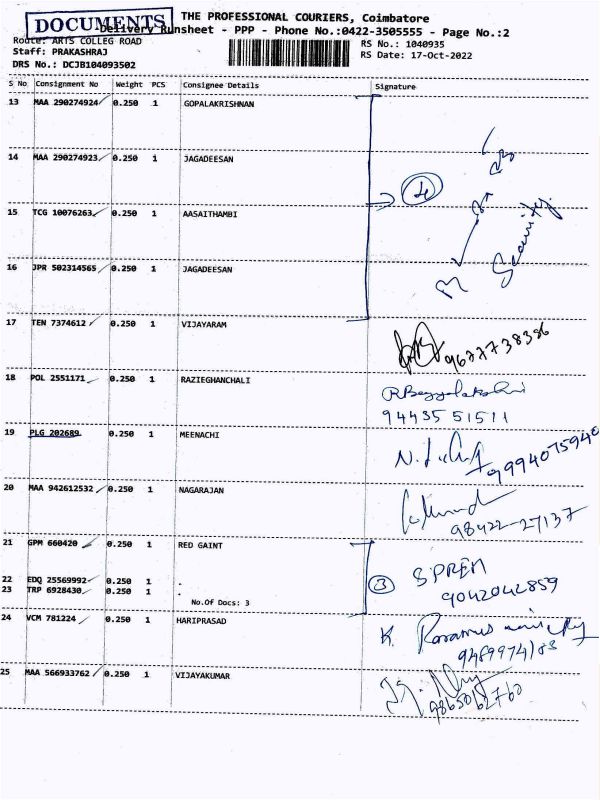 DOCUMENTS
THE PROFESSIONAL COURIERS, Coimbatore
Delivery Runsheet - PPP - Phone No.:0422-3505555 - Page No.:2
Route: ARTS COLLEG ROAD
RS No.: 1040935
Staff: PRAKASHRAJ
RS Date: 17-Oct-2022
DRS No.: DCJB104093502
S No Consignment No Weight PCS Consignee Details Signature
13 MAA 290274924 0.250 1 GOPALAKRISHNAN
14 MAA 290274923 0.250 1 JAGADEESAN
4
15 TCG 10076263 0.250 1 AASAITHAMBI
Security.
16 JPR 502314565 0.250 1 JAGADEESAN
17 TEN 7374612 0.250 1 VIJAYARAM
9677738386
18 POL 2551171 0.250 1 RAZIEGHANCHALI
9443551511
19 PLG 202689 0.250 1 MEENACHI
9994075940
20 MAA 942612532 0.250 1 NAGARAJAN
98422-27137
21 GPM 660420 0.250 1 RED GAINT
3 S PREM
22 EDQ 25569992 0.250 1 .
23 TRP 6928430 0.250 1 .
9042042859
No.Of Docs: 3
24 VCM 781224 0.250 1 HARIPRASAD
K.
9489974183
25 MAA 566933762 0.250 1 VIJAYAKUMAR
9865062760